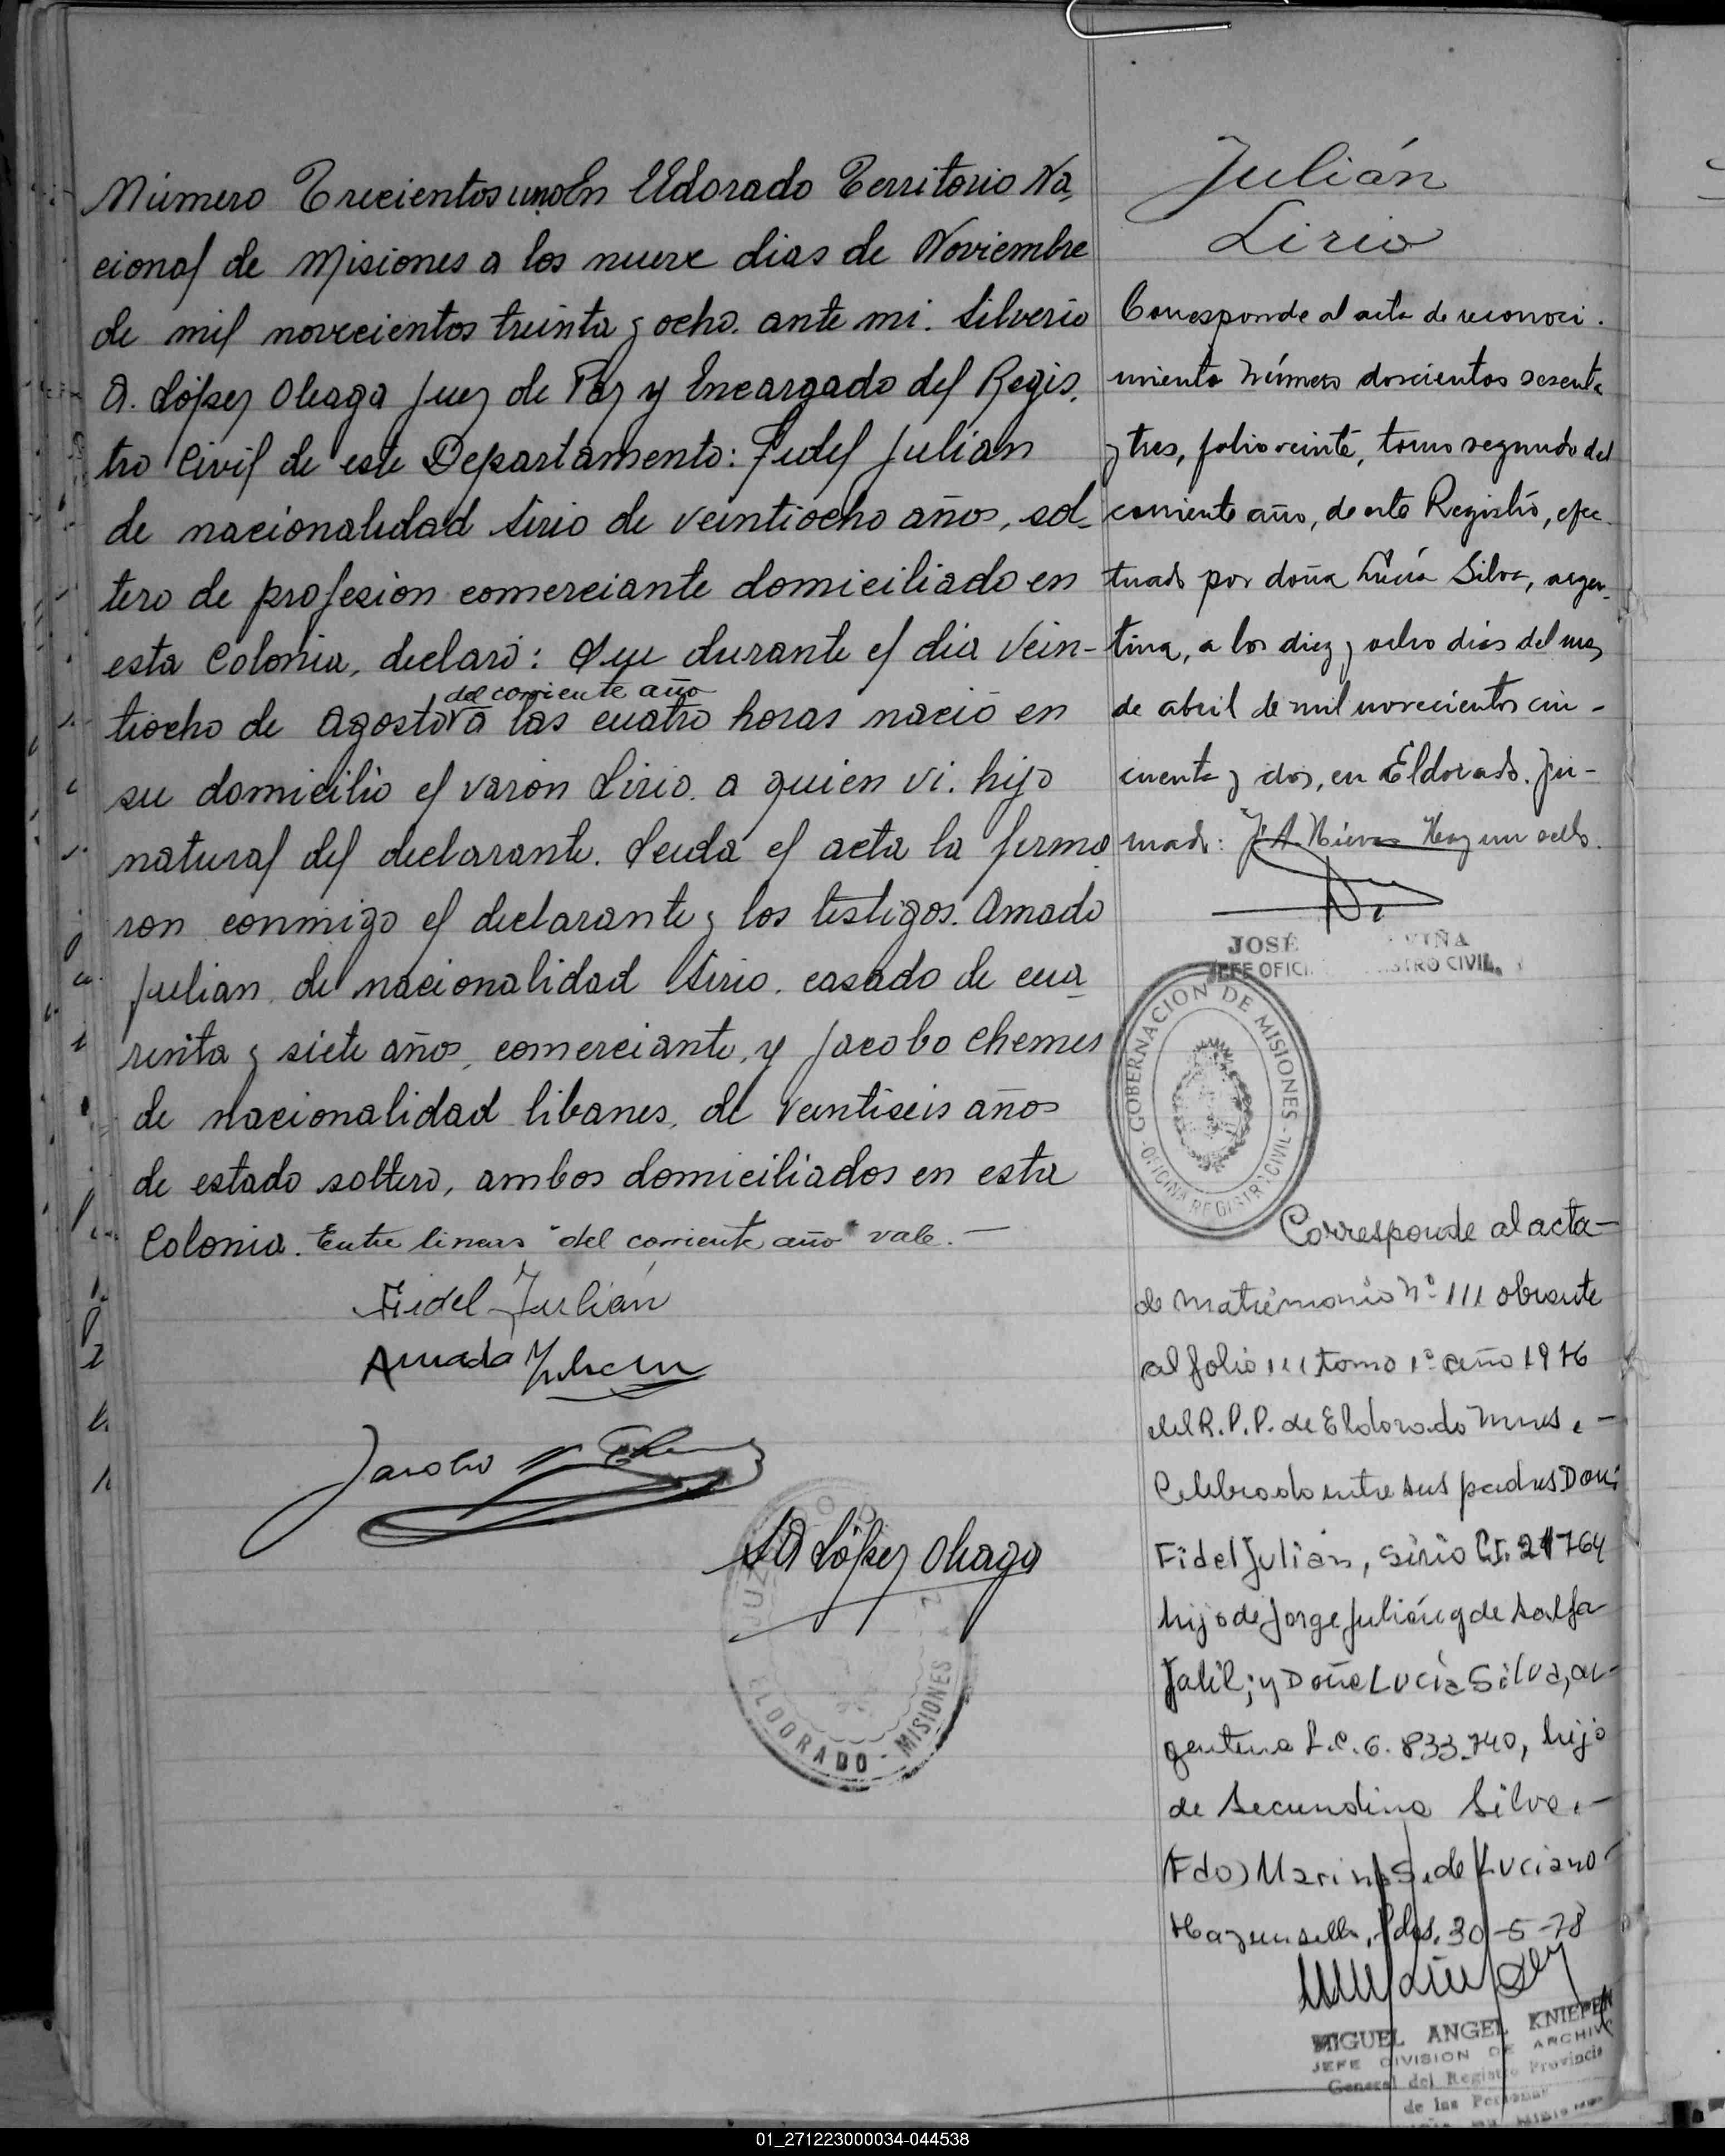 Número Trecientos uno En Eldorado Territorio Na-
cional de Misiones a los nueve dias de Noviembre
de mil novecientos treinta y ocho. ante mi. Silverio
A. López Oleaga Juez de Paz y Encargado del Regis-
tro Civil de este Departamento: Fidel Julian
de nacionalidad Sirio de veintiocho años, sol-
tero de profesión comerciante domiciliado en
esta Colonia, declaró: Que durante el dia Vein-
del corriente año
tiocho de Agosto a las cuatro horas nació en
su domicilio el varón Lirio. a quien vi. hijo
natural del declarante. Leida el acta la firma
ron conmigo el declarante y los testigos. Amado
Julian, de nacionalidad Sirio. casado de cua-
renta y siete años, comerciante, y Jacobo Chemes
de nacionalidad libanes, de Veintiseis años
de estado soltero, ambos domiciliados en esta
Colonia. Entre lineas "del corriente año" vale.—
Fidel Julián
Amado Julian
Jacobo
SA López Oleaga
ELDORADO - MISIONES
Julián
Lirio
Corresponde al acta de reconoci-
miento número doscientos sesenta
y tres, folio veinte, tomo segundo del
corriente año, de este Registro, efec-
tuado por doña Lucía Silva, argen-
tina, a los diez y ocho dias del mes
de abril de mil novecientos cin-
cuenta y dos, en Eldorado. Fir-
mado: J. A. Nieves Hay un sello.
JOSÉ VIÑA
JEFE OFICI. REGISTRO CIVIL
GOBERNACION DE MISIONES
- OFICINA REGISTRO CIVIL -
Corresponde al acta-
de matrimonio Nº 111 obrante
al folio 111 tomo 1º año 1976
del R.P.P. de Eldorado Mnes.-
Celebrado entre sus padres Don:
Fidel Julián, sirio C.I. 21764
hijo de Jorge Julián y de Salfa
Jalil; y Doña Lucía Silva, ar-
gentina L.C. 6.833.740, hija
de Secundina Silva.-
(Fdo) Marina S. de Luciano
Hay un sello, Pdas. 30-5-78
MIGUEL ANGEL KNIEPEN
JEFE DIVISION DE ARCHIVO
General del Registro Provincia
de las Personas